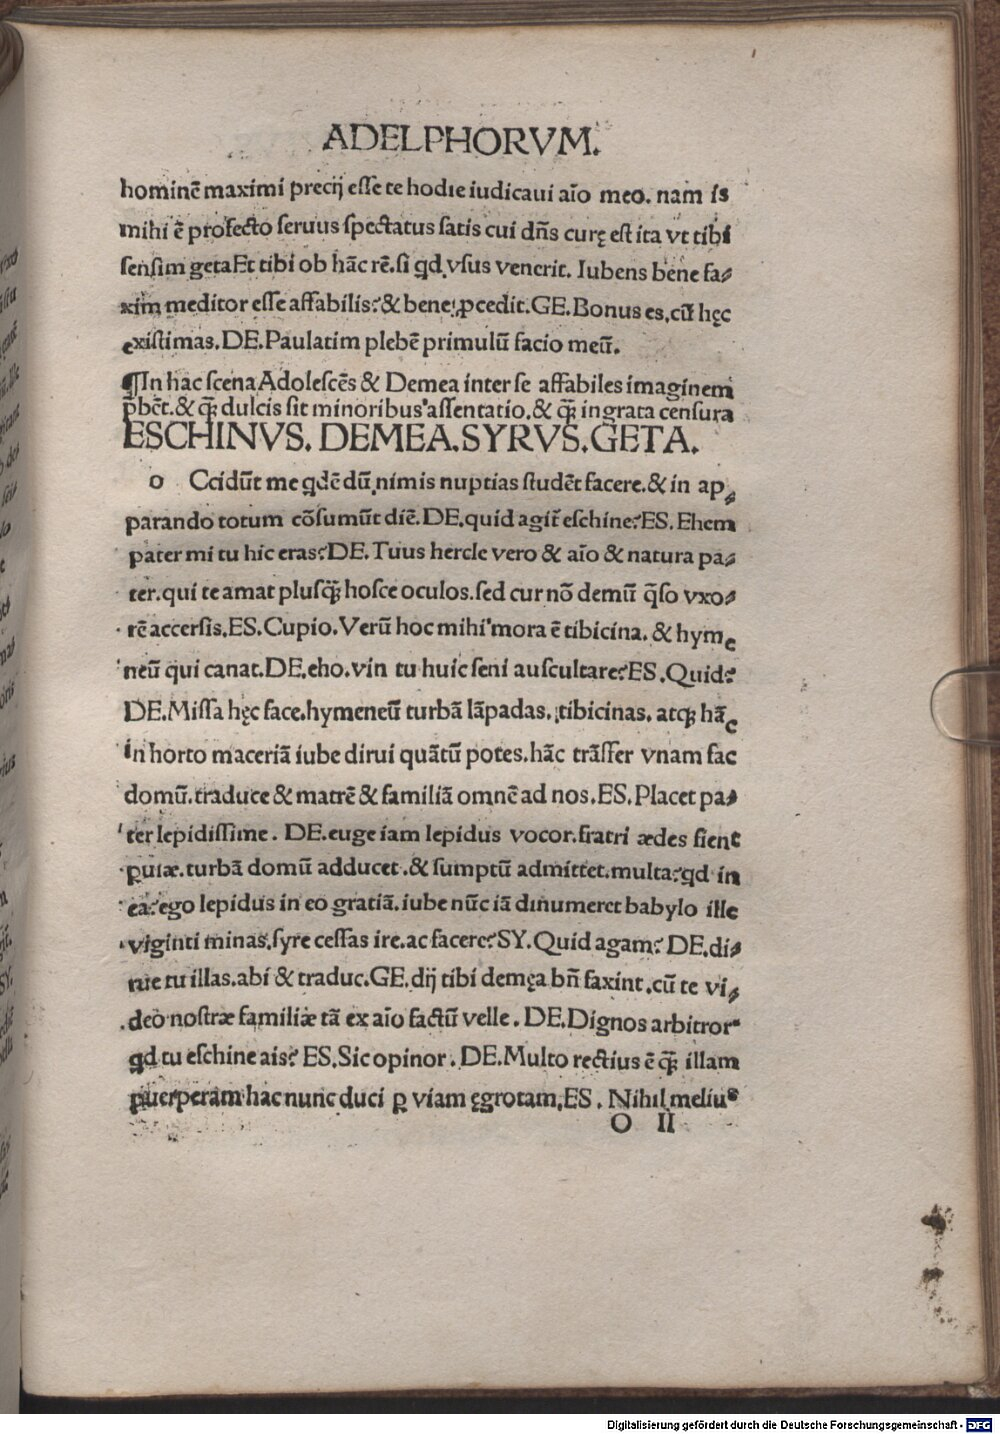 ADELPHORVM.
hominē maximi precij eſſe te hodie iudicaui aīo meo. nam is
mihi ē profecto ſeruus ſpectatus ſatis cui dn̄s curę eſt ita vt tibi
ſenſim geta Et tibi ob hāc rē. ſi qd vſus venerit. Iubens bene fa⸗
xim meditor eſſe affabilis? & bene ꝓcedit. GE. Bonus es. cū hęc
exiſtimas. DE. Paulatim plebē primulū facio meū.
¶In hac ſcena Adoleſcēs & Demea inter ſe affabiles imaginem
p̄bēt. & qꝫ dulcis ſit minoribus aſſentatio. & qꝫ ingrata cenſura
ESCHINVS. DEMEA. SYRVS. GETA.
o Ccidūt me qdē dū nimis nuptias ſtudēt facere. & in ap⸗
parando totum cōſumūt diē. DE. quid agit̄ eſchine? ES. Ehem
pater mi tu hic eras? DE. Tuus hercle vero & aīo & natura pa⸗
ter. qui te amat pluſqꝫ hoſce oculos. ſed cur nō demū q̄ſo vxo⸗
rē accerſis. ES. Cupio. Verū hoc mihi mora ē tibicina. & hyme
neū qui canat. DE. eho. vin tu huic ſeni auſcultare? ES. Quid?
DE. Miſſa hęc face. hymeneū turbā lāpadas. tibicinas. atqꝫ hāc
in horto maceriā iube dirui quātū potes. hāc trāſfer vnam fac
domū. traduce & matrē & familiā omnē ad nos. ES. Placet pa⸗
ter lepidiſſime. DE. euge iam lepidus vocor. fratri ædes fient
ꝑuiæ. turbā domū adducet. & ſumptū admittet. multa? qd in
ea? ego lepidus in eo gratiā. iube nūc iā dinumeret babylo ille
viginti minas. ſyre ceſſas ire. ac facere? SY. Quid agam? DE. di⸗
rue tu illas. abi & traduc. GE. dij tibi demęa bn̄ faxint. cū te vi⸗
deo noſtræ familiæ tā ex aīo factū velle. DE. Dignos arbitror
qd tu eſchine ais? ES. Sic opinor. DE. Multo rectius ē qꝫ illam
puerperam hac nunc duci ꝑ viam ęgrotam. ES. Nihil melius
O II
Digitalisierung gefördert durch die Deutsche Forschungsgemeinschaft - DFG